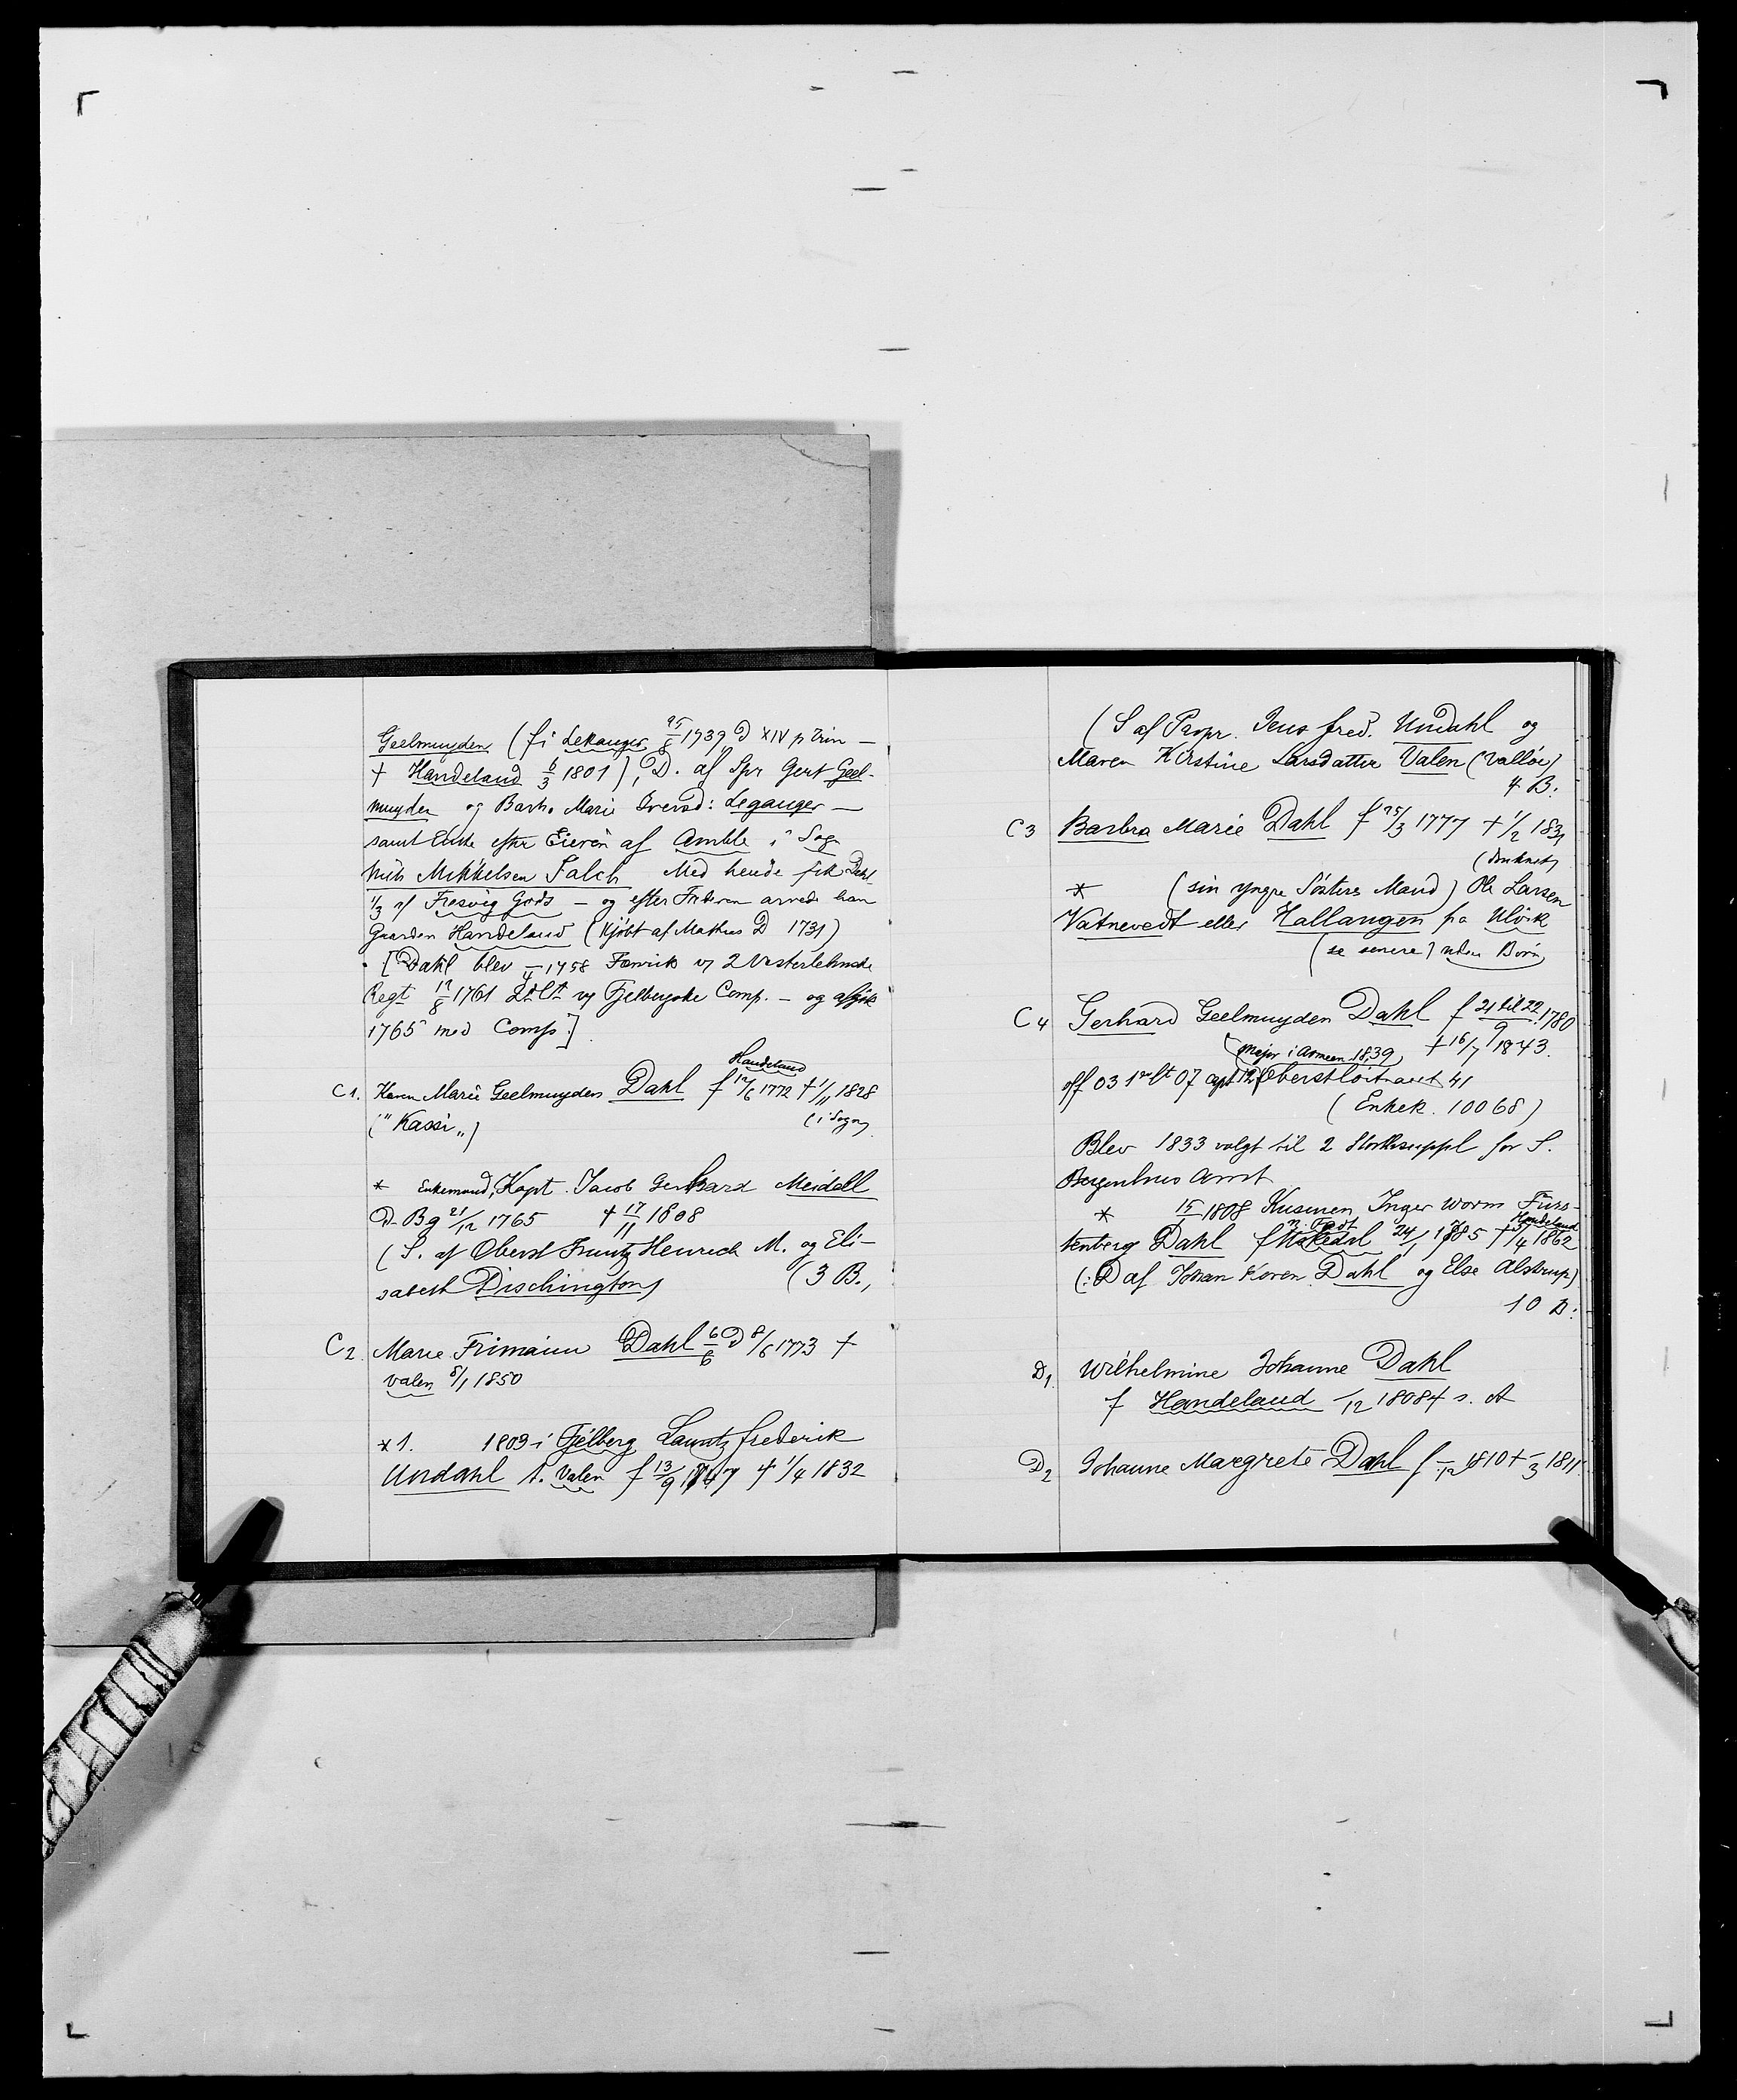 Geelmuyden (f i Lekanger 1739, D XIV p Trin —
† Handeland 6/3 1801), D. af Spr Gert Geel-
muyden og Barb. Marie Iversd: Leganger —
samt Enke efter Eieren af Amble i Sogn
Nils Mikkelsen Falch Med hende fik Dahl
1/3 af Fresvig Gods — og efter Faderen arvede han
Gaarden Handeland (kjöbt af Mathias D 1731)
[Dahl blev 1758 Fænrik v 2 Vesterlehnske
Regt 19/8 1761 2 Lt v Fjelbergske Comp. — og afgik
1765 med Comp.]
Handeland
C1. Karen Marie Geelmuyden Dahl f 12/6 1772 † 1/11 1828
("Kassi") (i Sogn)
* Enkemand, Kapt. Jacob Gerhard Meidell
D. Bg 21/12 1765 † 17/11 1808
(S. af Oberst Frantz Henrich M. og Eli-
sabeth Dischington) (3 B.)
C2. Marie Frimann Dahl 6/6 D 8/6 1773 †
Valen 8/1 1850
* 1. 1803 i Fjelberg Lauritz Frederik
Undahl t. Valen f 13/9 † 1/4 1832
(S af Propr. Jens Fred. Undahl og
Maren Kirstine Larsdatter Valen (Valløe)
4 B.
C3 Barbra Marie Dahl f 25/3 1777 † 1/2 1831
(druknet)
* (sin yngre Søsters Mand) Ole Larsen
Vatnevedt eller Hallangen fra Ulvik
(se senere) uden Børn
C4 Gerhard Geelmuyden Dahl f 21 til 22/9 1780
(Major i Armeen 1839) † 16/7 1843.
off 03 1ste Lt 07 capt 12 Oberstløitnant 41
(Enkek. 10068)
Blev 1833 valgt til 2 Storthssuppl for S.
Bergenhus Amt
* 15/1 1808 Kusinen Inger Worm Fürs-
Handeland
tenberg Dahl f 24/1 1785 † 1862
(: D af Johan Koren Dahl og Else Alstrup)
10 B:
D1. Wilhelmine Johanne Dahl
f Handeland —/12 1808 † s. A
D2 Johanne Margrete Dahl f —/12 1810 † —/3 1811